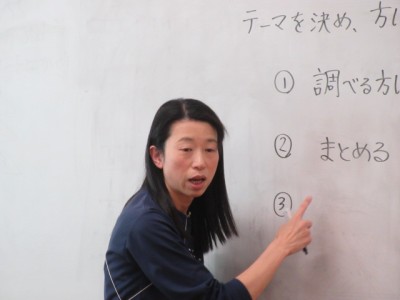 テーマを決め、方
① 調べる方
② まとめる
③